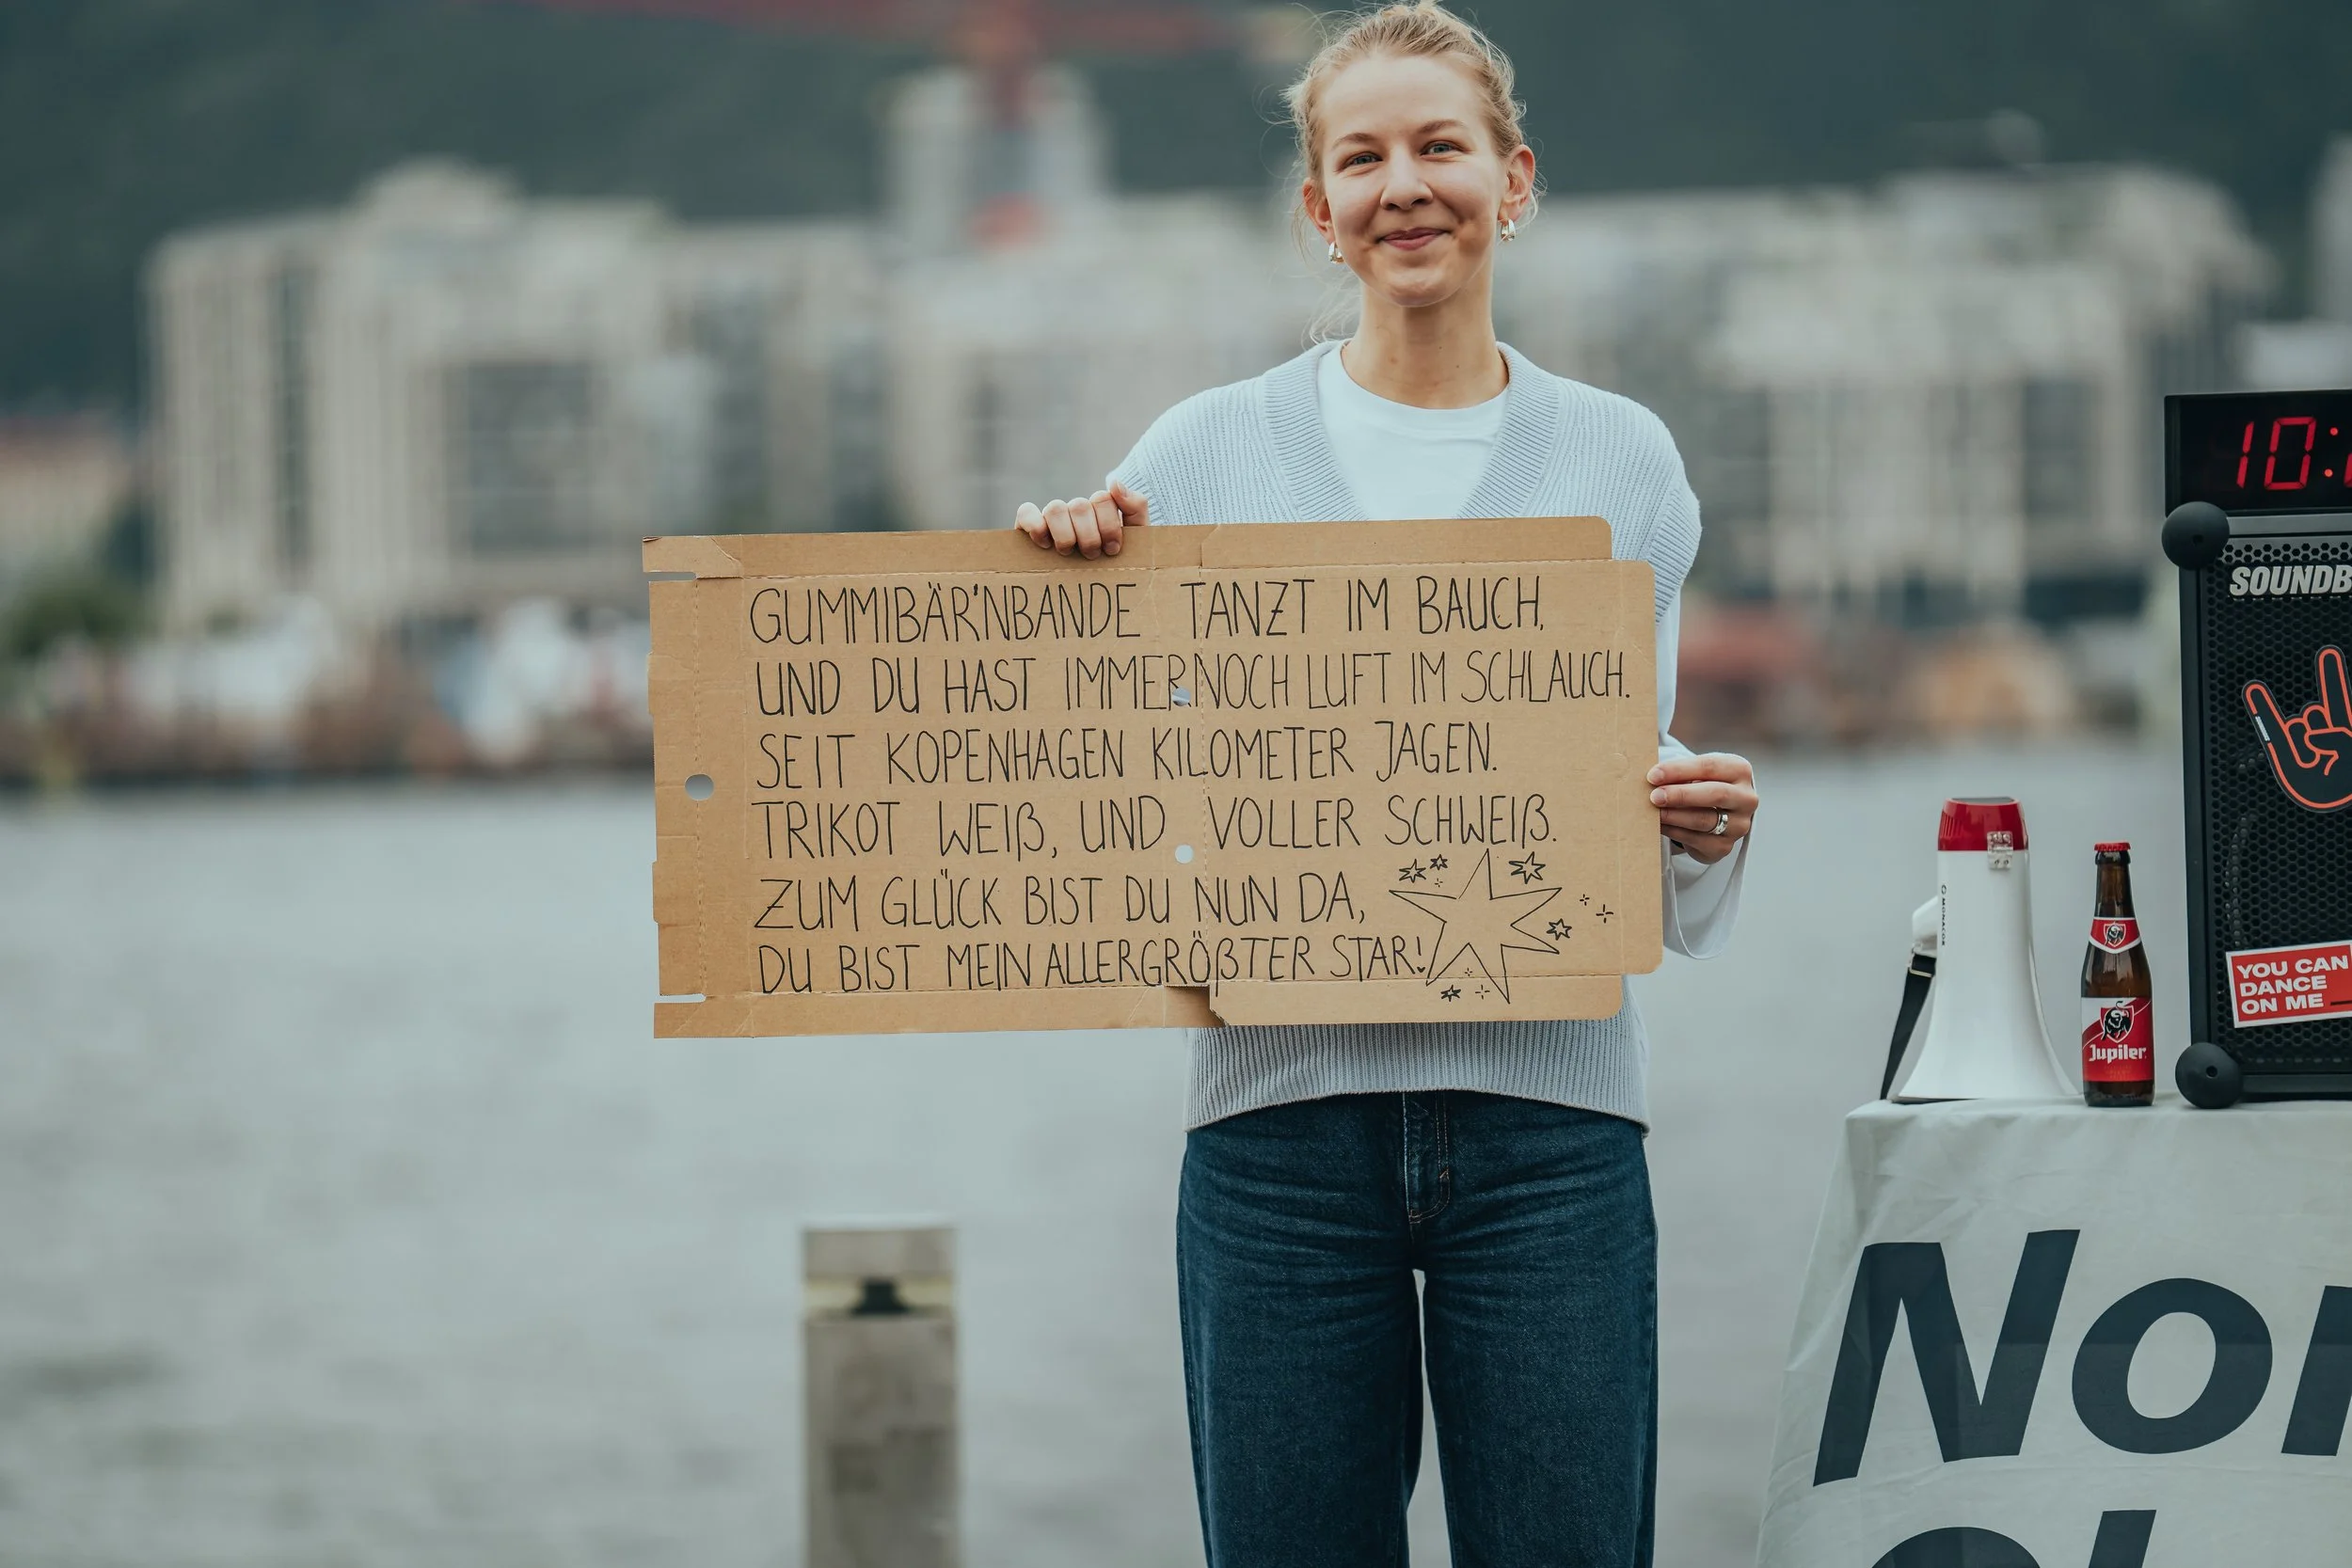 GUMMIBÄR'NBANDE TANZT IM BAUCH,
UND DU HAST IMMER NOCH LUFT IM SCHLAUCH.
SEIT KOPENHAGEN KILOMETER JAGEN.
TRIKOT WEIß, UND VOLLER SCHWEIß.
ZUM GLÜCK BIST DU NUN DA,
DU BIST MEIN ALLERGRÖßTER STAR!
10:
SOUNDB
YOU CAN
DANCE
ON ME
MONACOR
Jupiler
No